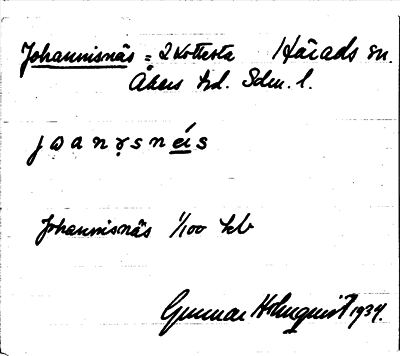 Johannisnäs = 2 Kottersta Härads sn.
Åkers hd. Sdm. l.
joanısnäs
Johannisnäs 1/100 kb
Gunnar Holmquist 1934.